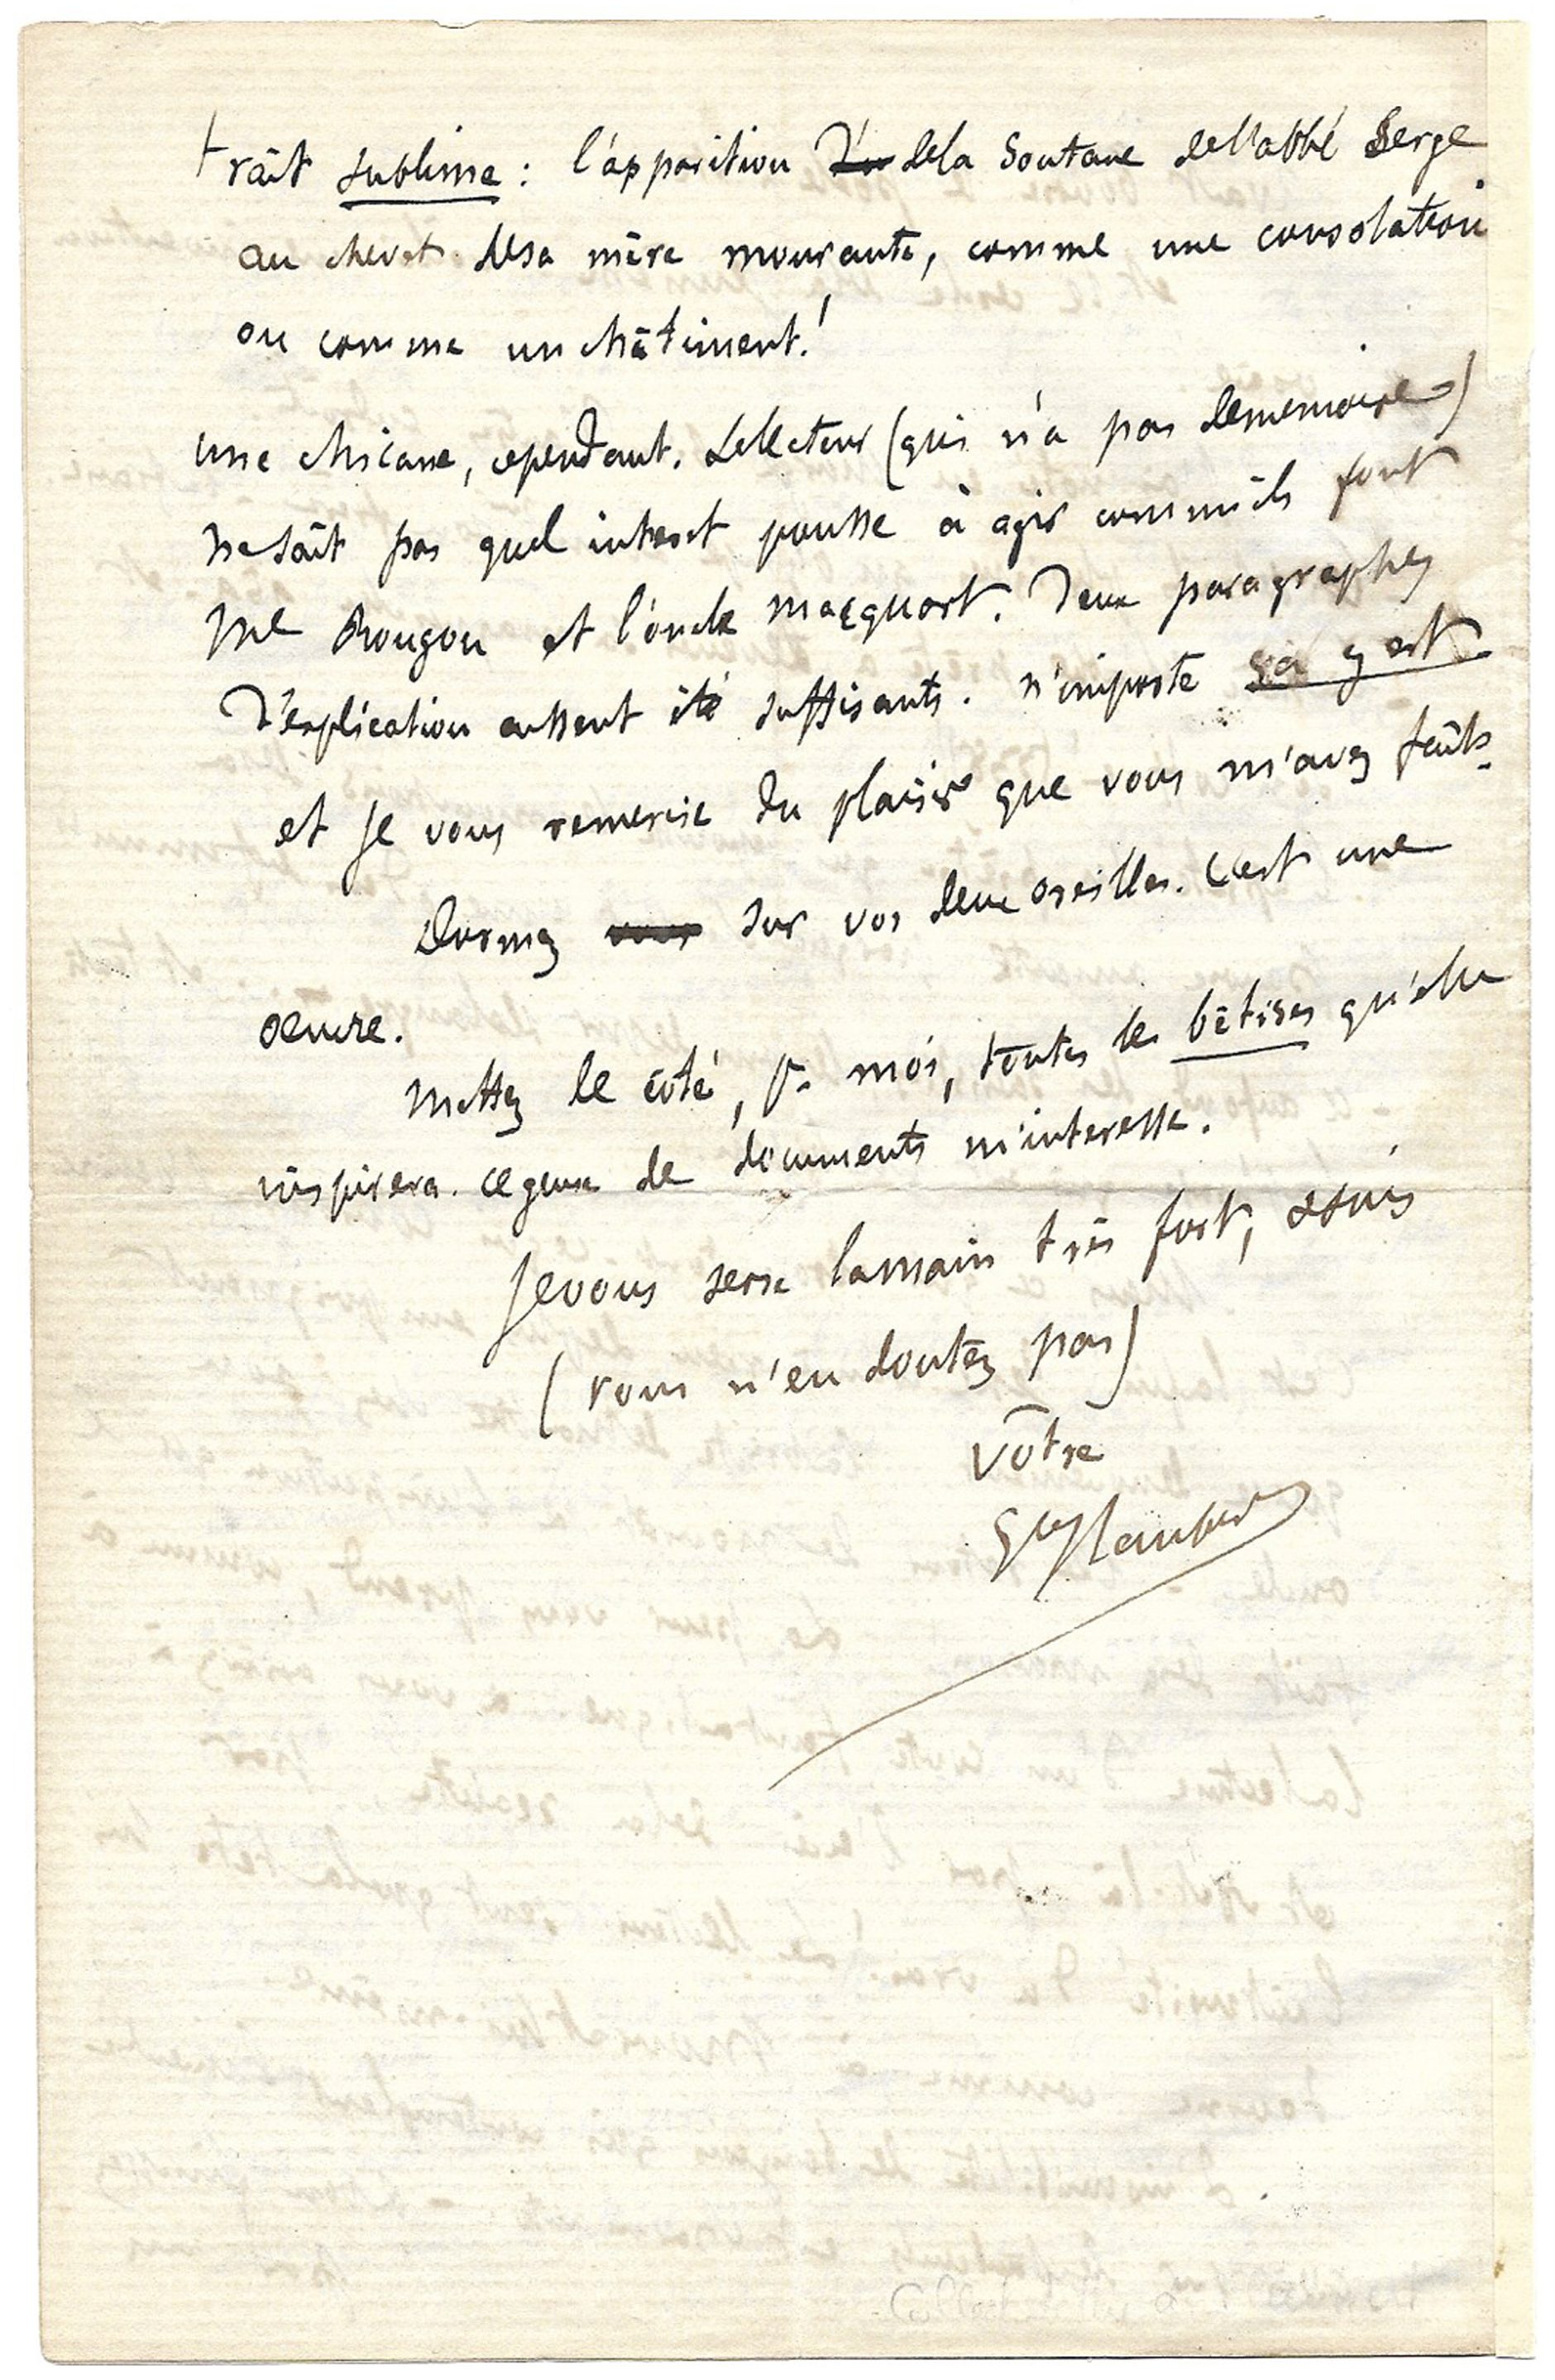 trait sublime : l'apparition de la soutane de l'abbé Serge
au chevet de sa mère mourante, comme une consolation
ou comme un châtiment !
une chicane, cependant. Le lecteur (qui n'a pas de memoire)
ne sait pas quel interet pousse à agir comme ils font
Me Rougon et l'oncle Macquart. Deux paragraphes
d'explication eussent été suffisants. n'importe ça y est
et je vous remercie du plaisir que vous m'avez fait.
Dormez vous sur vos deux oreilles. C'est une
oeuvre.
Mettez de côté, pr moi, toutes les bêtises qu'elle
inspirera. ce genre de documents m'interesse.
Je vous serre la main très fort, & suis
(vous n'en doutez pas)
vôtre
Gve Flaubert